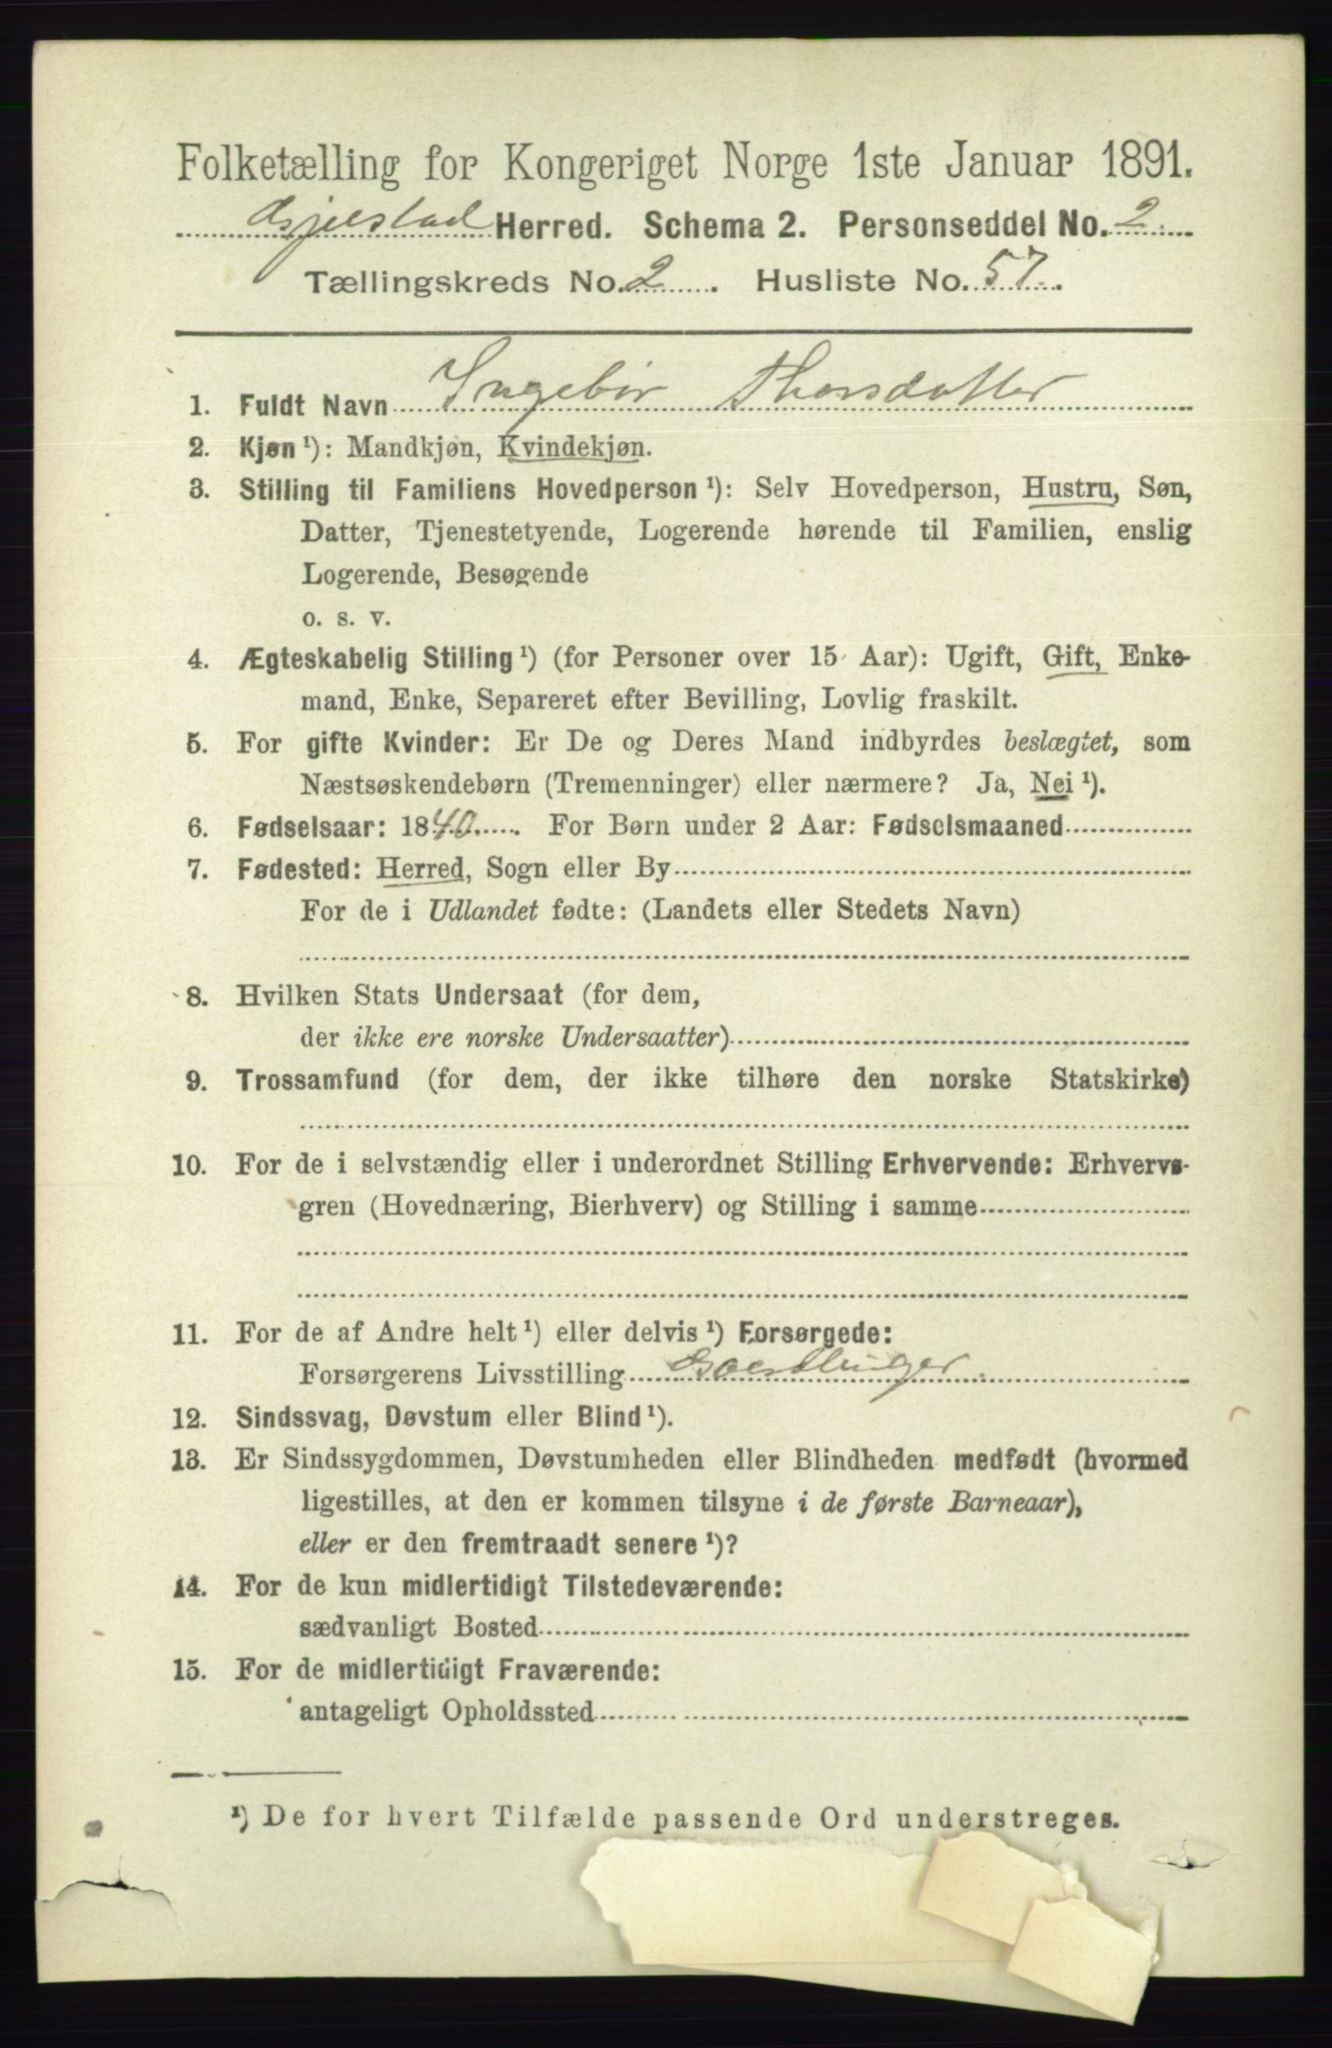 Folketælling for Kongeriget Norge 1ste Januar 1891.
Gjerstad Herred. Schema 2. Personseddel No. 2
Tællingskreds No. 2. Husliste No. 57.
1. Fuldt Navn Ingebør Thorsdatter
2. Kjøn ¹): Mandkjøn, Kvindekjøn.
3. Stilling til Familiens Hovedperson ¹): Selv Hovedperson, Hustru, Søn,
Datter, Tjenestetyende, Logerende hørende til Familien, enslig
Logerende, Besøgende
o. s. v.
4. Ægteskabelig Stilling ¹) (for Personer over 15 Aar): Ugift, Gift, Enke-
mand, Enke, Separeret efter Bevilling, Lovlig fraskilt.
5. For gifte Kvinder: Er De og Deres Mand indbyrdes beslægtet, som
Næstsøskendebørn (Tremenninger) eller nærmere? Ja, Nei ¹).
6. Fødselsaar: 1840. For Børn under 2 Aar: Fødselsmaaned
7. Fødested: Herred, Sogn eller By
For de i Udlandet fødte: (Landets eller Stedets Navn)
8. Hvilken Stats Undersaat (for dem,
der ikke ere norske Undersaatter)
9. Trossamfund (for dem, der ikke tilhøre den norske Statskirke)
10. For de i selvstændig eller i underordnet Stilling Erhvervende: Erhvervs-
gren (Hovednæring, Bierhverv) og Stilling i samme
11. For de af Andre helt ¹) eller delvis ¹) Forsørgede:
Forsørgerens Livsstilling
12. Sindssvag, Døvstum eller Blind ¹).
13. Er Sindssygdommen, Døvstumheden eller Blindheden medfødt (hvormed
ligestilles, at den er kommen tilsyne i de første Barneaar),
eller er den fremtraadt senere ¹)?
14. For de kun midlertidigt Tilstedeværende:
sædvanligt Bosted
15. For de midlertidigt Fraværende:
antageligt Opholdssted
¹) De for hvert Tilfælde passende Ord understreges.